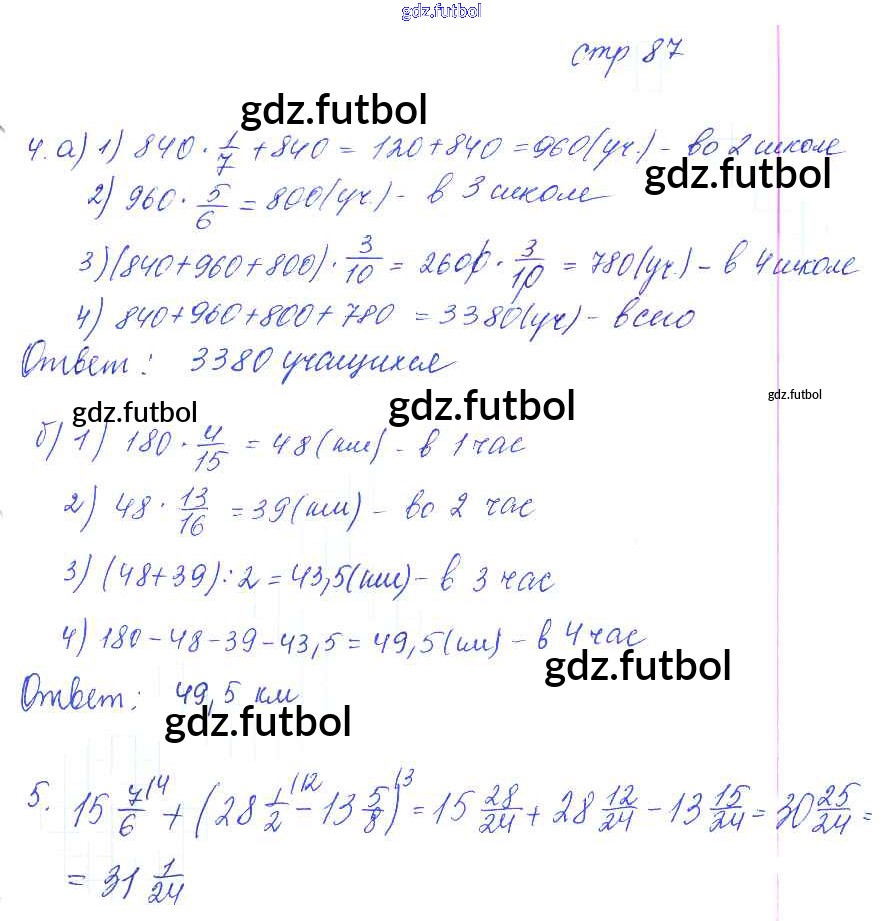 gdz.futbol
стр 87
gdz.futbol
4. а) 1) 840 · 1/7 + 840 = 120 + 840 = 960 (уч.) - во 2 школе
gdz.futbol
2) 960 · 5/6 = 800 (уч.) - в 3 школе
3) (840+960+800) · 3/10 = 2600 · 3/10 = 780 (уч.) - в 4 школе
4) 840+960+800+780 = 3380 (уч) - всего
Ответ: 3380 учащихся
gdz.futbol
gdz.futbol
gdz.futbol
б) 1) 180 · 4/15 = 48 (км) - в 1 час
2) 48 · 13/16 = 39 (км) - во 2 час
3) (48+39):2 = 43,5 (км) - в 3 час
4) 180-48-39-43,5 = 49,5 (км) - в 4 час
gdz.futbol
Ответ: 49,5 км
gdz.futbol
5. 15 7/6 (4 + (28 1/2 (12 - 13 5/8) (3 = 15 28/24 + 28 12/24 - 13 15/24 = 30 25/24 =
= 31 1/24